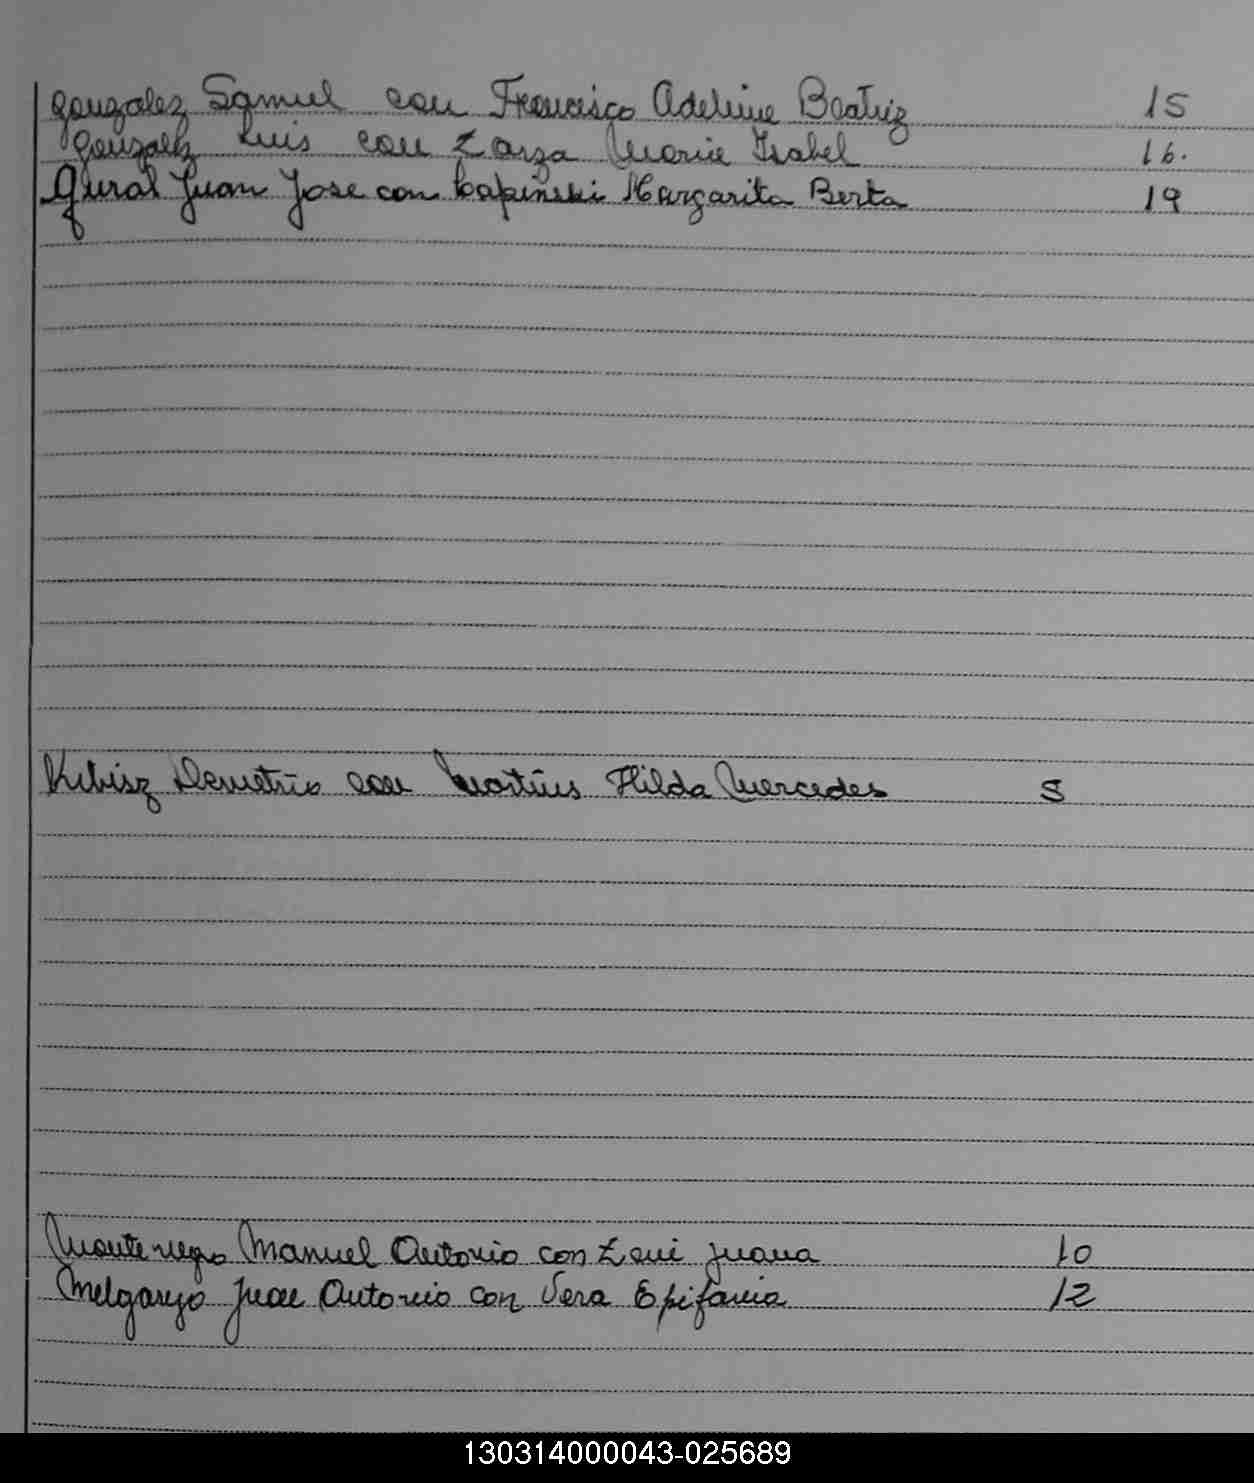 Gonzalez Samuel con Francisco Adelina Beatriz 15
Gonzalez Luis con Zarza Maria Isabel 16.
Gural Juan Jose con Capinski Margarita Berta 19
Kibisz Demetrio con Martins Hilda Mercedes 5
Montenegro Manuel Antonio con Juana 10
Melgarejo Juan Antonio con Vera Epifania 12
130314000043-025689